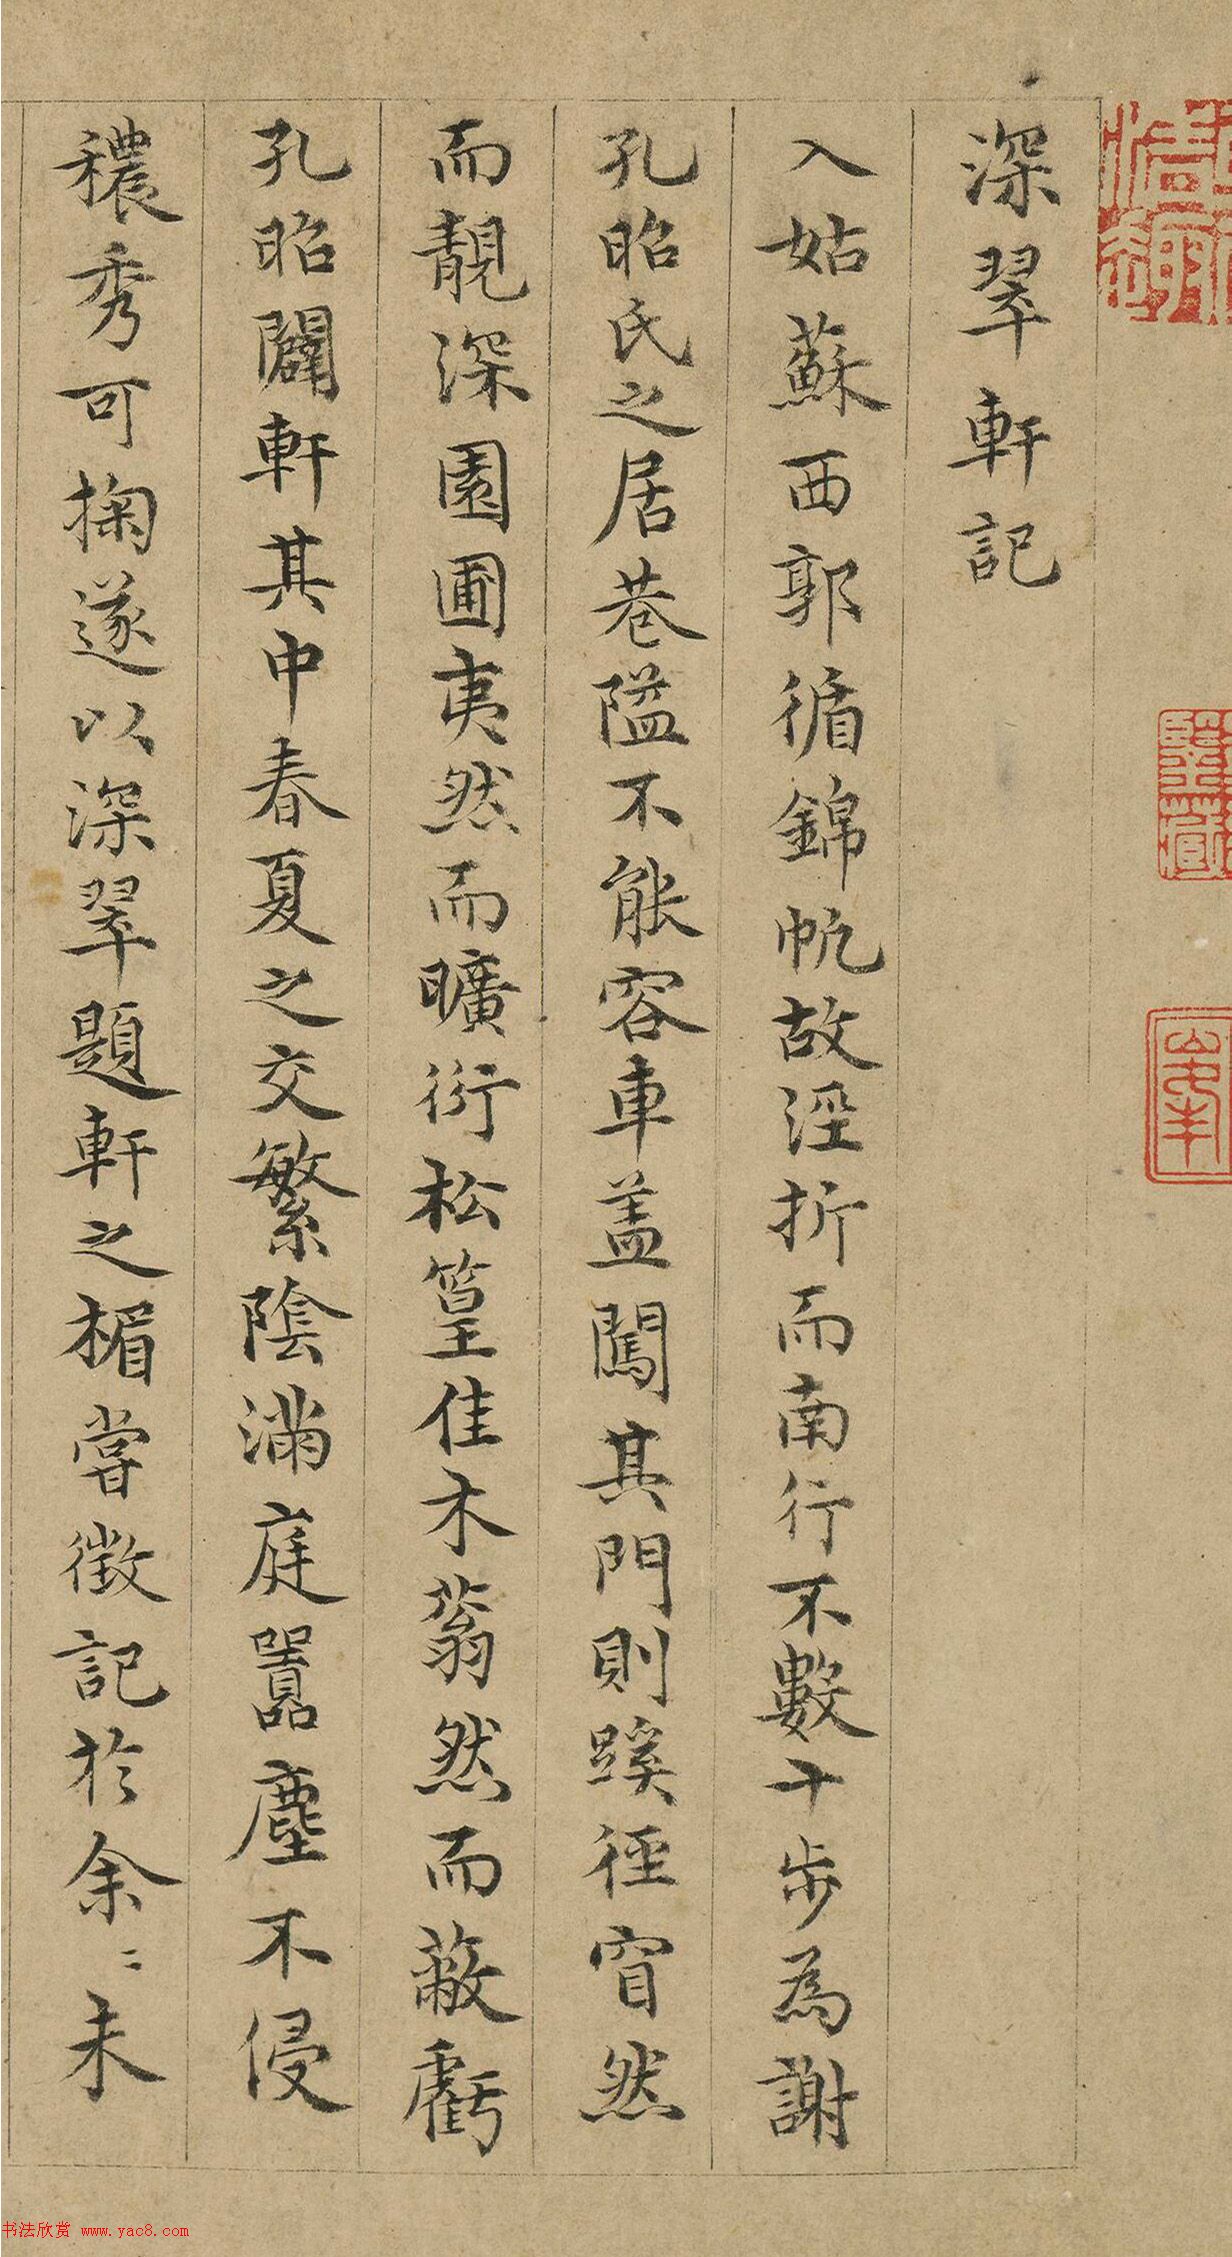 深翠軒記
入姑蘇西郭循錦帆故涇折而南行不數十步為謝
孔昭氏之居巷隘不能容車蓋闖其門則蹊徑窅然
而靚深園圃夷然而曠衍松篁佳木蓊然而蔽虧
孔昭闢軒其中春夏之交繁陰滿庭囂塵不侵
穠秀可掬遂以深翠題軒之楣嘗徵記於余〻未
书法欣赏 www.yac8.com